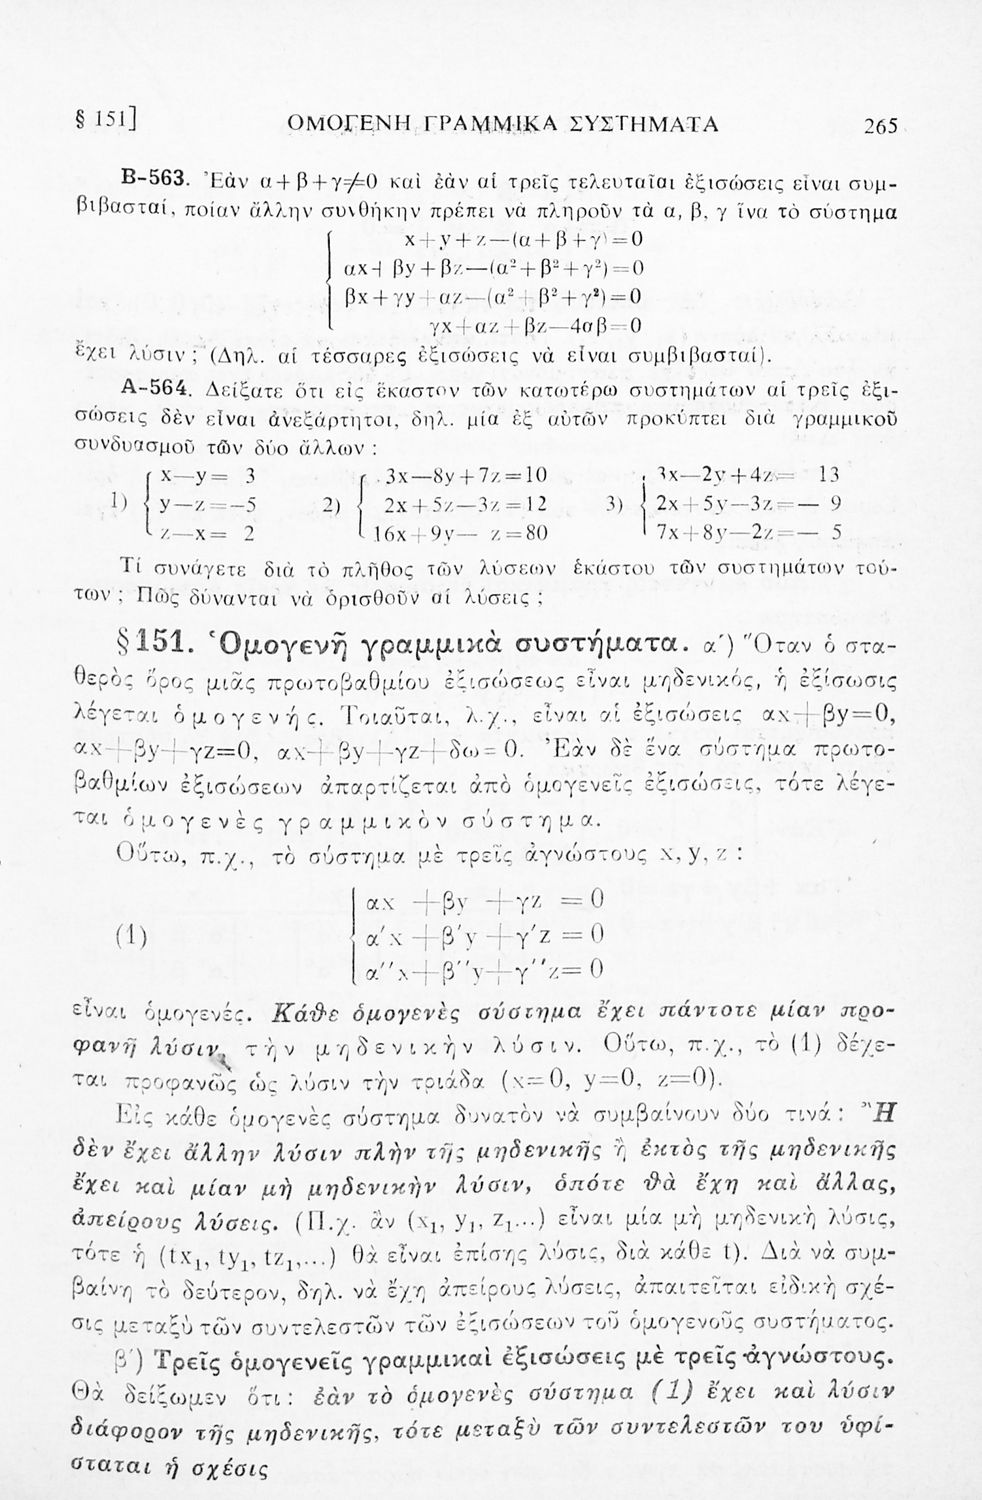 § 151]
ΟΜΟΓΕΝΗ ΓΡΑΜΜΙΚΑ ΣΥΣΤΗΜΑΤΑ
265
Β-563. Ἐὰν α+β+γ≠0 καὶ ἐὰν αἱ τρεῖς τελευταῖαι ἐξισώσεις εἶναι συμ-
βιβασταί, ποίαν ἄλλην συνθήκην πρέπει νὰ πληροῦν τὰ α, β, γ ἵνα τὸ σύστημα
x+y+z—(α+β+γ)=0
αx+βy+βz—(α²+β²+γ²)=0
βx+γy+αz—(α²+β²+γ²)=0
γx+αz+βz—4αβ=0
ἔχει λύσιν; (Δηλ. αἱ τέσσαρες ἐξισώσεις νὰ εἶναι συμβιβασταί).
Α-564. Δείξατε ὅτι εἰς ἕκαστον τῶν κατωτέρω συστημάτων αἱ τρεῖς ἐξι-
σώσεις δὲν εἶναι ἀνεξάρτητοι, δηλ. μία ἐξ αὐτῶν προκύπτει διὰ γραμμικοῦ
συνδυασμοῦ τῶν δύο ἄλλων :
1) x—y= 3
y—z=—5
z—x= 2
2) 3x—8y+7z=10
2x+5z—3z=12
16x+9y— z=80
3) 3x—2y+4z= 13
2x+5y—3z=— 9
7x+8y—2z=— 5
Τί συνάγετε διὰ τὸ πλῆθος τῶν λύσεων ἑκάστου τῶν συστημάτων τού-
των ; Πῶς δύνανται νὰ ὁρισθοῦν αἱ λύσεις ;
§151. Ὁμογενῆ γραμμικὰ συστήματα. α΄) Ὅταν ὁ στα-
θερὸς ὅρος μιᾶς πρωτοβαθμίου ἐξισώσεως εἶναι μηδενικός, ἡ ἐξίσωσις
λέγεται ὁμογενής. Τοιαῦται, λ.χ., εἶναι αἱ ἐξισώσεις αx+βy=0,
αx+βy+γz=0, αx+βy+γz+δω=0. Ἐὰν δὲ ἕνα σύστημα πρωτο-
βαθμίων ἐξισώσεων ἀπαρτίζεται ἀπὸ ὁμογενεῖς ἐξισώσεις, τότε λέγε-
ται ὁμογενὲς γραμμικὸν σύστημα.
Οὕτω, π.χ., τὸ σύστημα μὲ τρεῖς ἀγνώστους x, y, z :
(1)
αx +βy +γz =0
α΄x+β΄y+γ΄z =0
α΄΄x+β΄΄y+γ΄΄z=0
εἶναι ὁμογενές. Κάθε ὁμογενὲς σύστημα ἔχει πάντοτε μίαν προ-
φανῆ λύσιν, τὴν μηδενικὴν λύσιν. Οὕτω, π.χ., τὸ (1) δέχε-
ται προφανῶς ὡς λύσιν τὴν τριάδα (x=0, y=0, z=0).
Εἰς κάθε ὁμογενὲς σύστημα δυνατὸν νὰ συμβαίνουν δύο τινά : Ἢ
δὲν ἔχει ἄλλην λύσιν πλὴν τῆς μηδενικῆς ἢ ἐκτὸς τῆς μηδενικῆς
ἔχει καὶ μίαν μὴ μηδενικὴν λύσιν, ὁπότε θὰ ἔχῃ καὶ ἄλλας,
ἀπείρους λύσεις. (Π.χ. ἂν (x₁, y₁, z₁...) εἶναι μία μὴ μηδενικὴ λύσις,
τότε ἡ (tx₁, ty₁, tz₁,...) θὰ εἶναι ἐπίσης λύσις, διὰ κάθε t). Διὰ νὰ συμ-
βαίνῃ τὸ δεύτερον, δηλ. νὰ ἔχῃ ἀπείρους λύσεις, ἀπαιτεῖται εἰδικὴ σχέ-
σις μεταξὺ τῶν συντελεστῶν τῶν ἐξισώσεων τοῦ ὁμογενοῦς συστήματος.
β΄) Τρεῖς ὁμογενεῖς γραμμικαὶ ἐξισώσεις μὲ τρεῖς ἀγνώστους.
Θὰ δείξωμεν ὅτι : ἐὰν τὸ ὁμογενὲς σύστημα (1) ἔχει καὶ λύσιν
διάφορον τῆς μηδενικῆς, τότε μεταξὺ τῶν συντελεστῶν του ὑφί-
σταται ἡ σχέσις